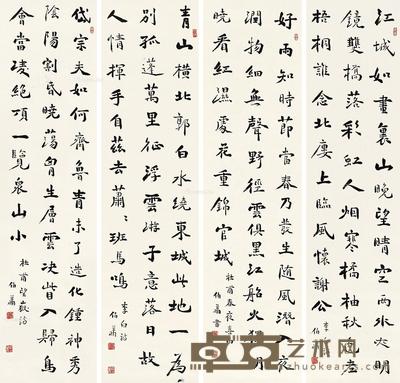 江城如畫裏山晚望晴空兩水夾明
鏡雙橋落彩虹人烟寒橘柚秋老
梧桐誰念北樓上臨風懷謝公 李白
好雨知時節當春乃發生隨風潛入夜
潤物細無聲野徑雲俱黑江船火獨明
曉看紅濕處花重錦官城 杜甫春夜喜雨
青山橫北郭白水繞東城此地一為
別孤蓬萬里征浮雲游子意落日故
人情揮手自茲去蕭〻班馬鳴 李白詩
岱宗夫如何齊魯青未了造化鍾神秀
陰陽割昏曉蕩胷生層雲決眥入歸鳥
會當凌絕頂一覽衆山小 杜甫望嶽詩
艺术网